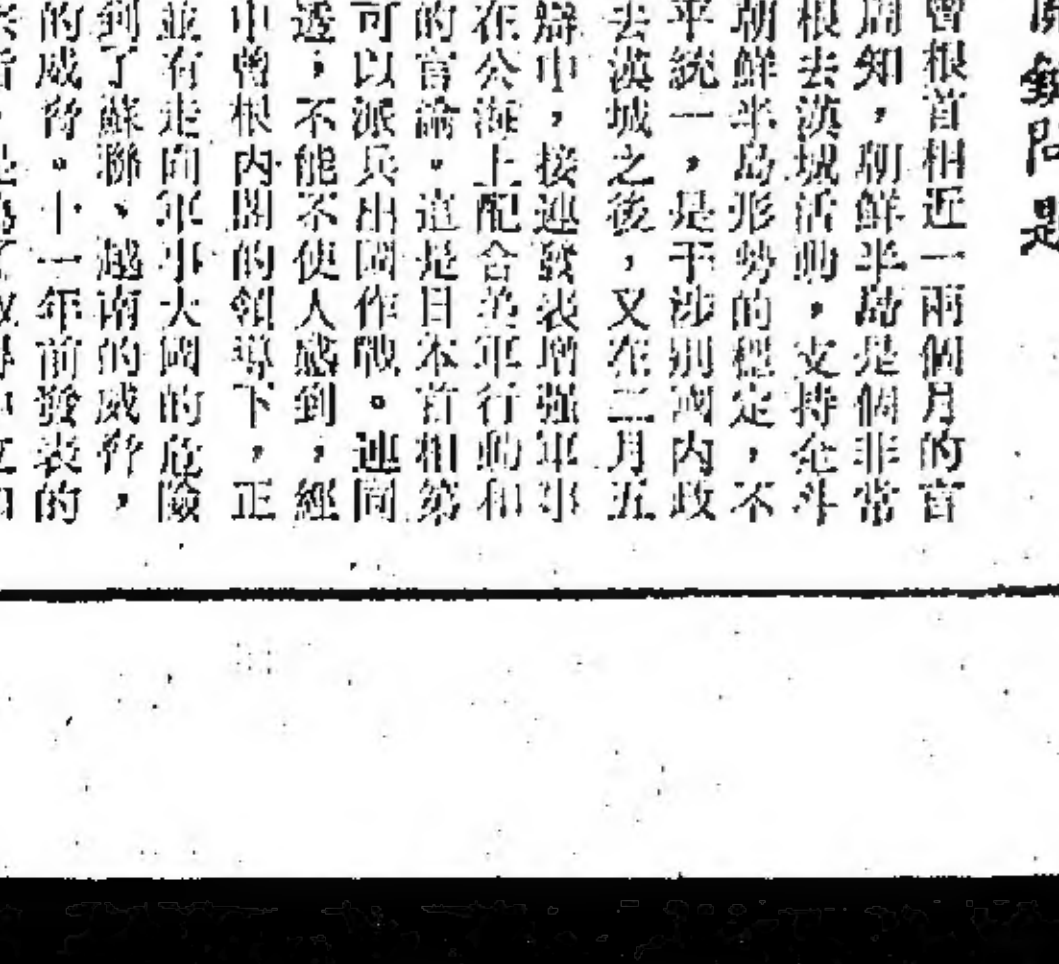 問題
曾根首相近一兩個月的言
周知，朝鮮半島是個非常
根去漢城活動，支持全斗
朝鮮半島形勢的穩定，不
平統一，是干涉別國內政
去漢城之後，又在二月五
辯中，接連發表增强軍事
在公海上配合美軍行動和
的言論。這是日本首相第
可以派兵出國作戰。連同
透，不能不使人感到，經
中曾根內閣的領導下，正
並有走向軍事大國的危險
到了蘇聯、越南的威脅，
的威脅。十一年前發表的